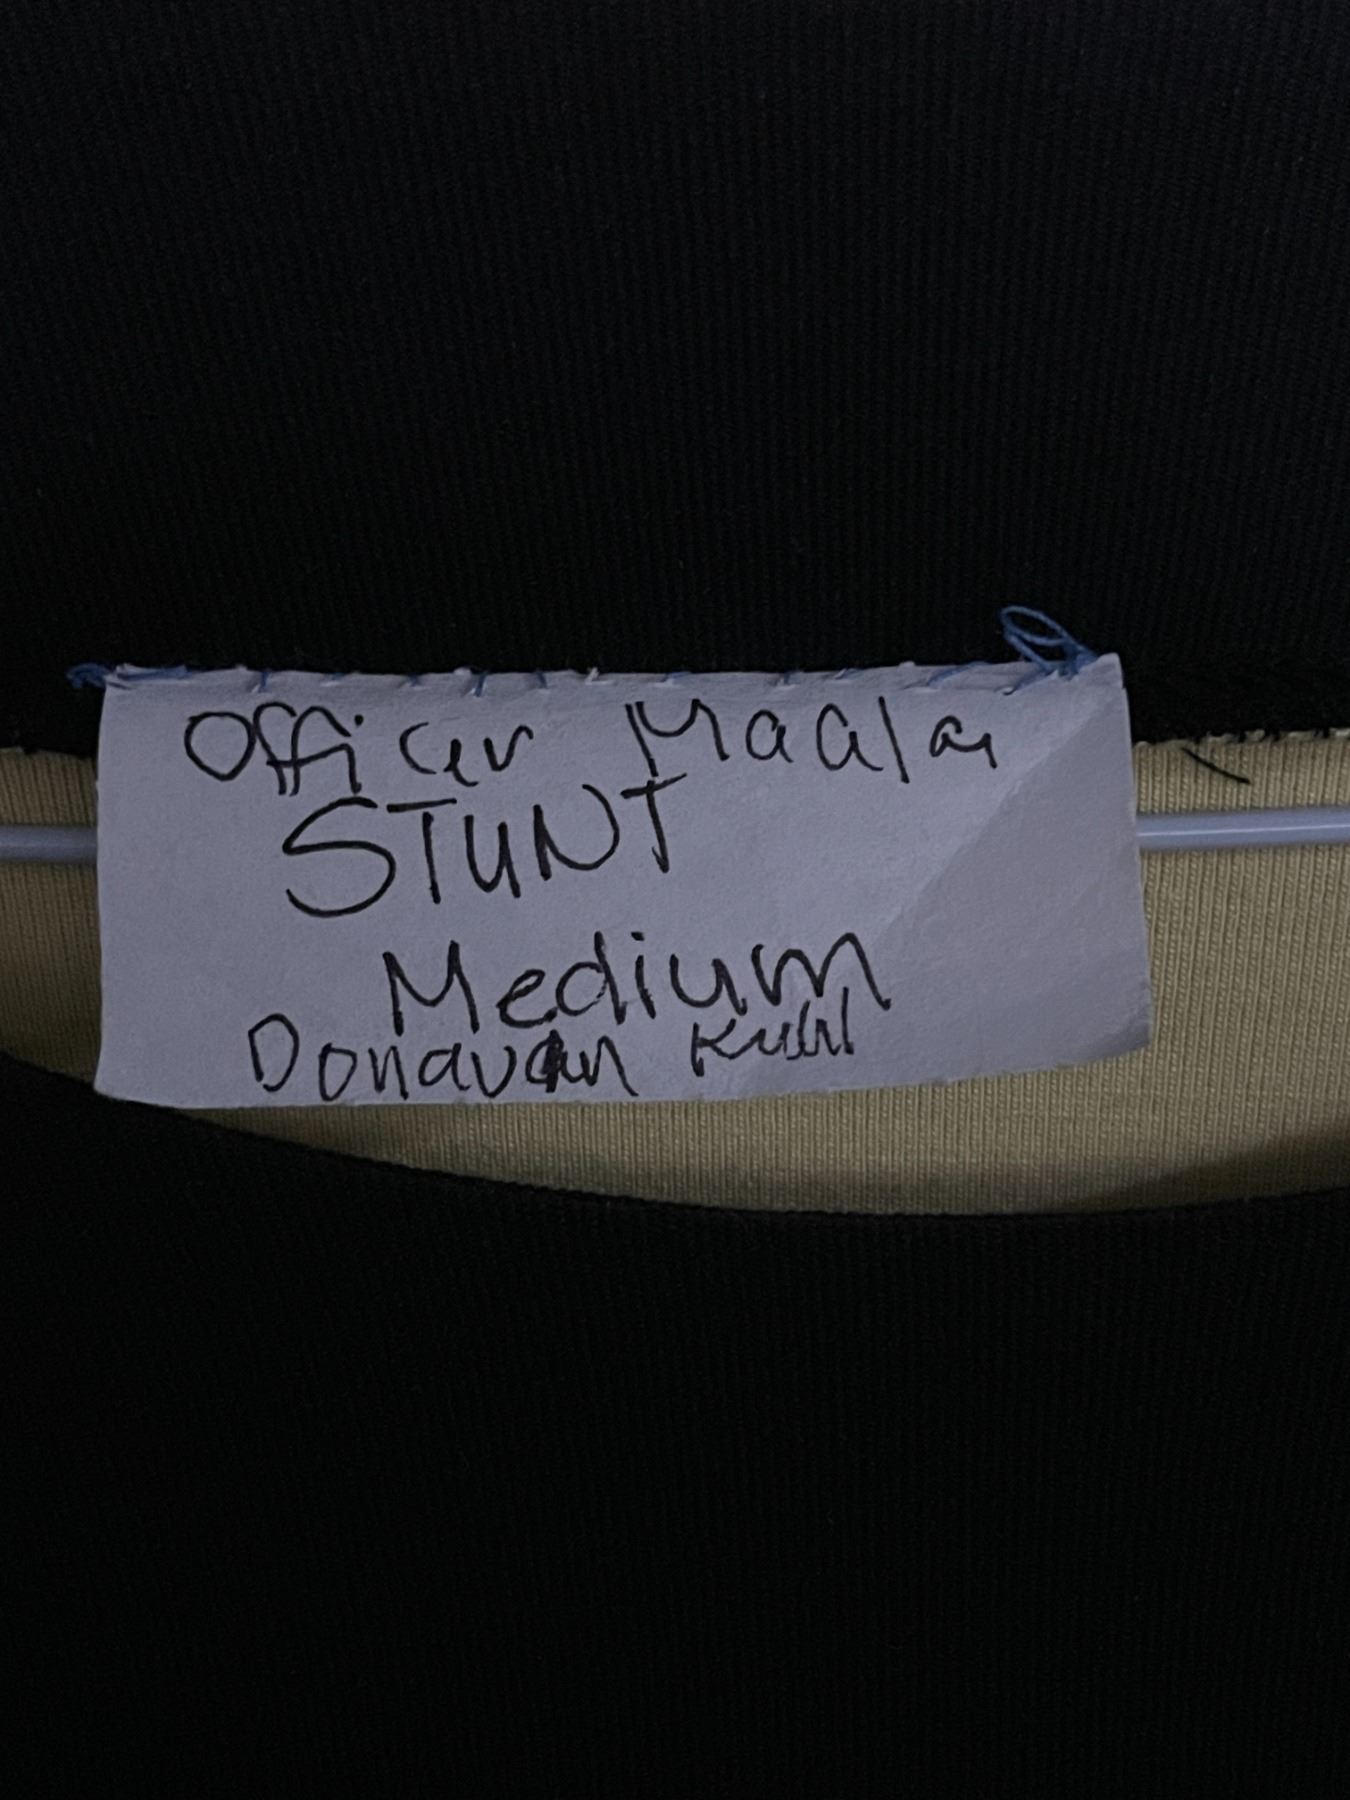 Officer Maala
STUNT
Medium
Donavan Kuhl